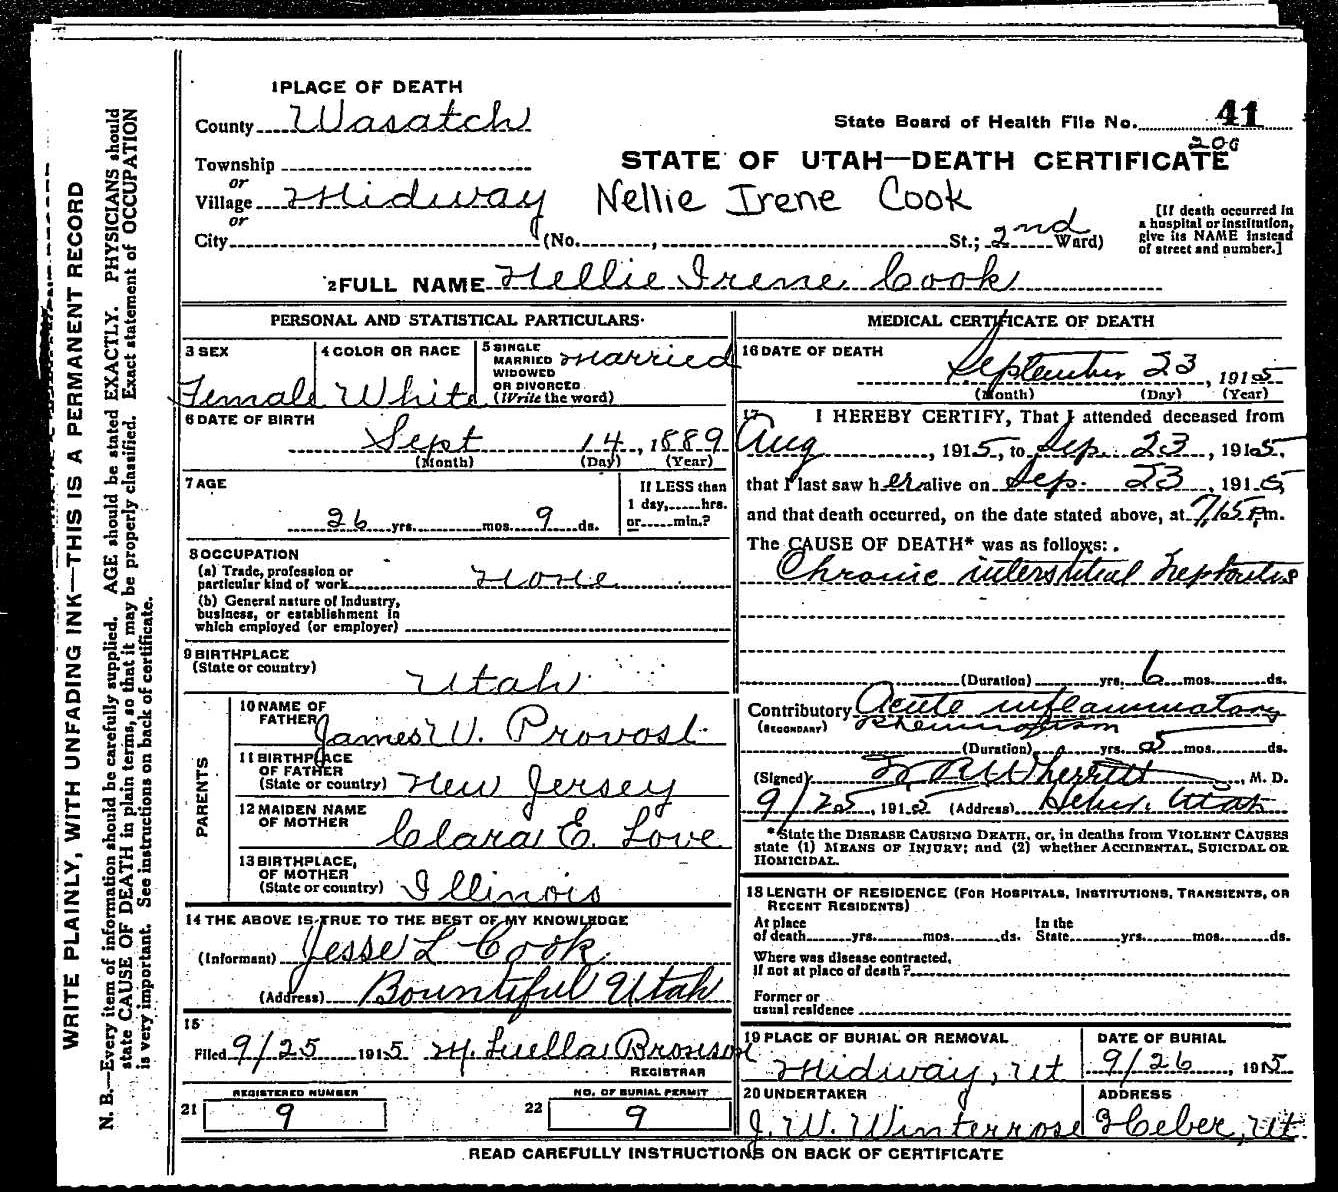 1 PLACE OF DEATH
County Wasatch
State Board of Health File No. 41
200
Township
STATE OF UTAH—DEATH CERTIFICATE
or
Village Midway
Nellie Irene Cook
or
City (No. , St.; 2nd Ward)
[If death occurred in a hospital or institution, give its NAME instead of street and number.]
2 FULL NAME Nellie Irene Cook
PERSONAL AND STATISTICAL PARTICULARS
3 SEX Female
4 COLOR OR RACE White
5 SINGLE MARRIED WIDOWED OR DIVORCED (Write the word) Married
6 DATE OF BIRTH
Sept 14, 1889
(Month) (Day) (Year)
7 AGE
26 yrs. mos. 9 ds.
If LESS than 1 day, hrs. or min.?
8 OCCUPATION
(a) Trade, profession or particular kind of work None
(b) General nature of Industry, business, or establishment in which employed (or employer)
9 BIRTHPLACE
(State or country) Utah
PARENTS
10 NAME OF FATHER James W. Provost
11 BIRTHPLACE OF FATHER (State or country) New Jersey
12 MAIDEN NAME OF MOTHER Clara E. Love
13 BIRTHPLACE, OF MOTHER (State or country) Illinois
14 THE ABOVE IS TRUE TO THE BEST OF MY KNOWLEDGE
(Informant) Jesse L Cook
(Address) Bountiful Utah
15
Filed 9/25 1915 M. Luella Bronson
REGISTRAR
REGISTERED NUMBER
21 9
NO. OF BURIAL PERMIT
22 9
MEDICAL CERTIFICATE OF DEATH
16 DATE OF DEATH
September 23, 1915
(Month) (Day) (Year)
17 I HEREBY CERTIFY, That I attended deceased from
Aug , 1915, to Sep. 23, 1915,
that I last saw her alive on Sep. 23, 1915,
and that death occurred, on the date stated above, at 7:15 P.m.
The CAUSE OF DEATH* was as follows:
Chronic interstitial
(Duration) yrs. 6 mos. ds.
Contributory Acute inflammatory
(SECONDARY) Rheumatism
(Duration) yrs. mos. ds.
(Signed) Wherritt, M. D.
9/25, 1915 (Address) Heber, Utah
*State the DISEASE CAUSING DEATH, or, in deaths from VIOLENT CAUSES
state (1) MEANS OF INJURY; and (2) whether ACCIDENTAL, SUICIDAL OR
HOMICIDAL.
18 LENGTH OF RESIDENCE (FOR HOSPITALS, INSTITUTIONS, TRANSIENTS, OR
RECENT RESIDENTS)
At place of death yrs. mos. ds. In the State yrs. mos. ds.
Where was disease contracted,
if not at place of death?
Former or
usual residence
19 PLACE OF BURIAL OR REMOVAL
Midway, Ut
DATE OF BURIAL
9/26, 1915
20 UNDERTAKER
J. W. Winterrose
ADDRESS
Heber, Ut
READ CAREFULLY INSTRUCTIONS ON BACK OF CERTIFICATE
WRITE PLAINLY, WITH UNFADING INK—THIS IS A PERMANENT RECORD
N. B.—Every item of information should be carefully supplied. AGE should be stated EXACTLY. PHYSICIANS should
state CAUSE OF DEATH in plain terms, so that it may be properly classified. Exact statement of OCCUPATION
is very important. See instructions on back of certificate.